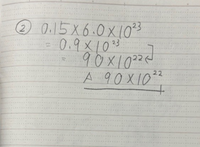 ② 0.15×6.0×10²³
= 0.9×10²³
= 90×10²²
A 90×10²²